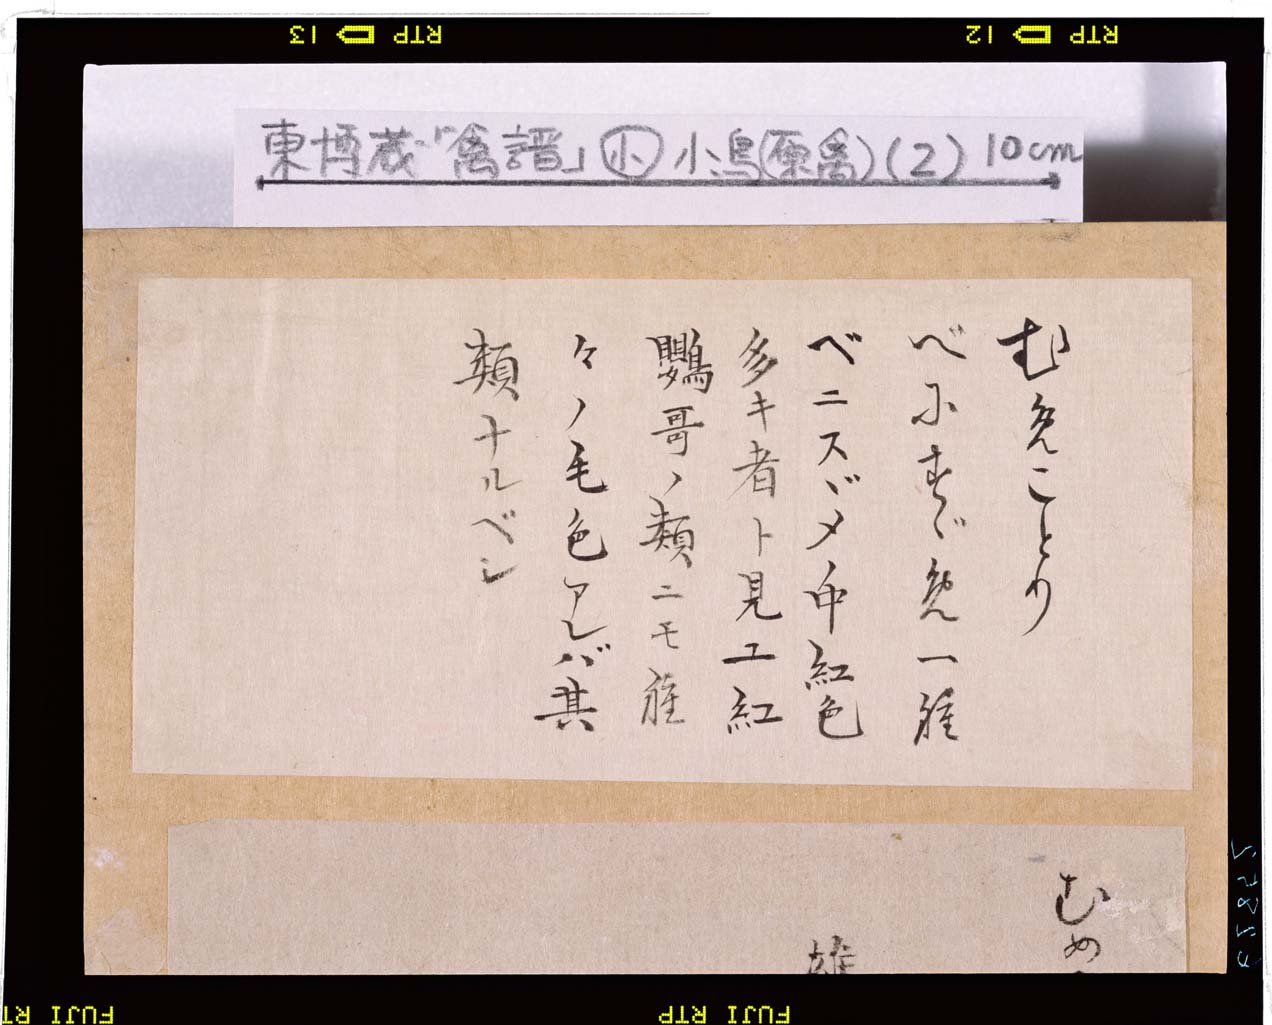 RTP 12
RTP 13
東博蔵『禽譜」㊦小鳥(原禽)(2) 10cm
むめことり
べにすゞめ一種
ベニスヾメ中紅色
多キ者ト見ユ紅
鸚哥ノ類ニモ種
々ノ毛色アレバ其
類ナルベシ
むめ
雄
FUJI RTP
FUJI RT